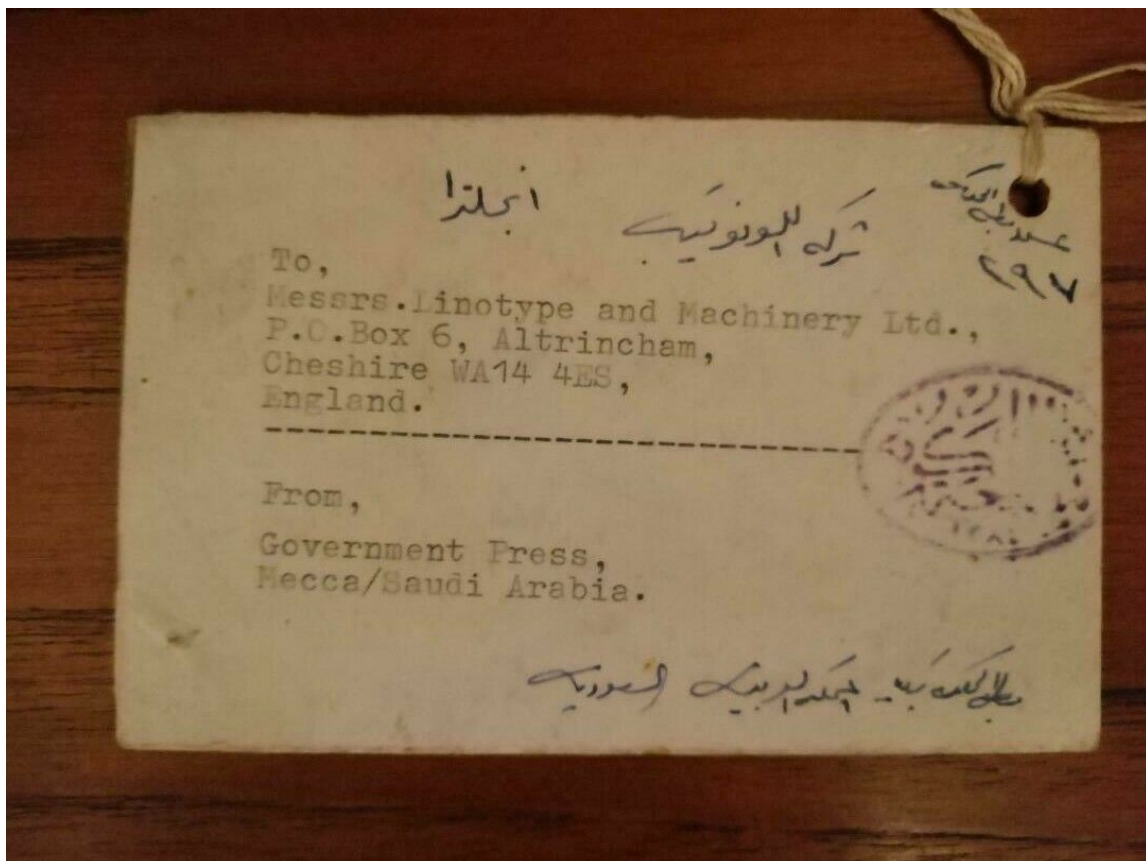 انجلترا
شركة اللونوتيب
٢٩٧
To,
Messrs.Linotype and Machinery Ltd.,
P.O.Box 6, Altrincham,
Cheshire WA14 4ES,
England.
From,
Government Press,
Mecca/Saudi Arabia.
المملكة العربية السعودية